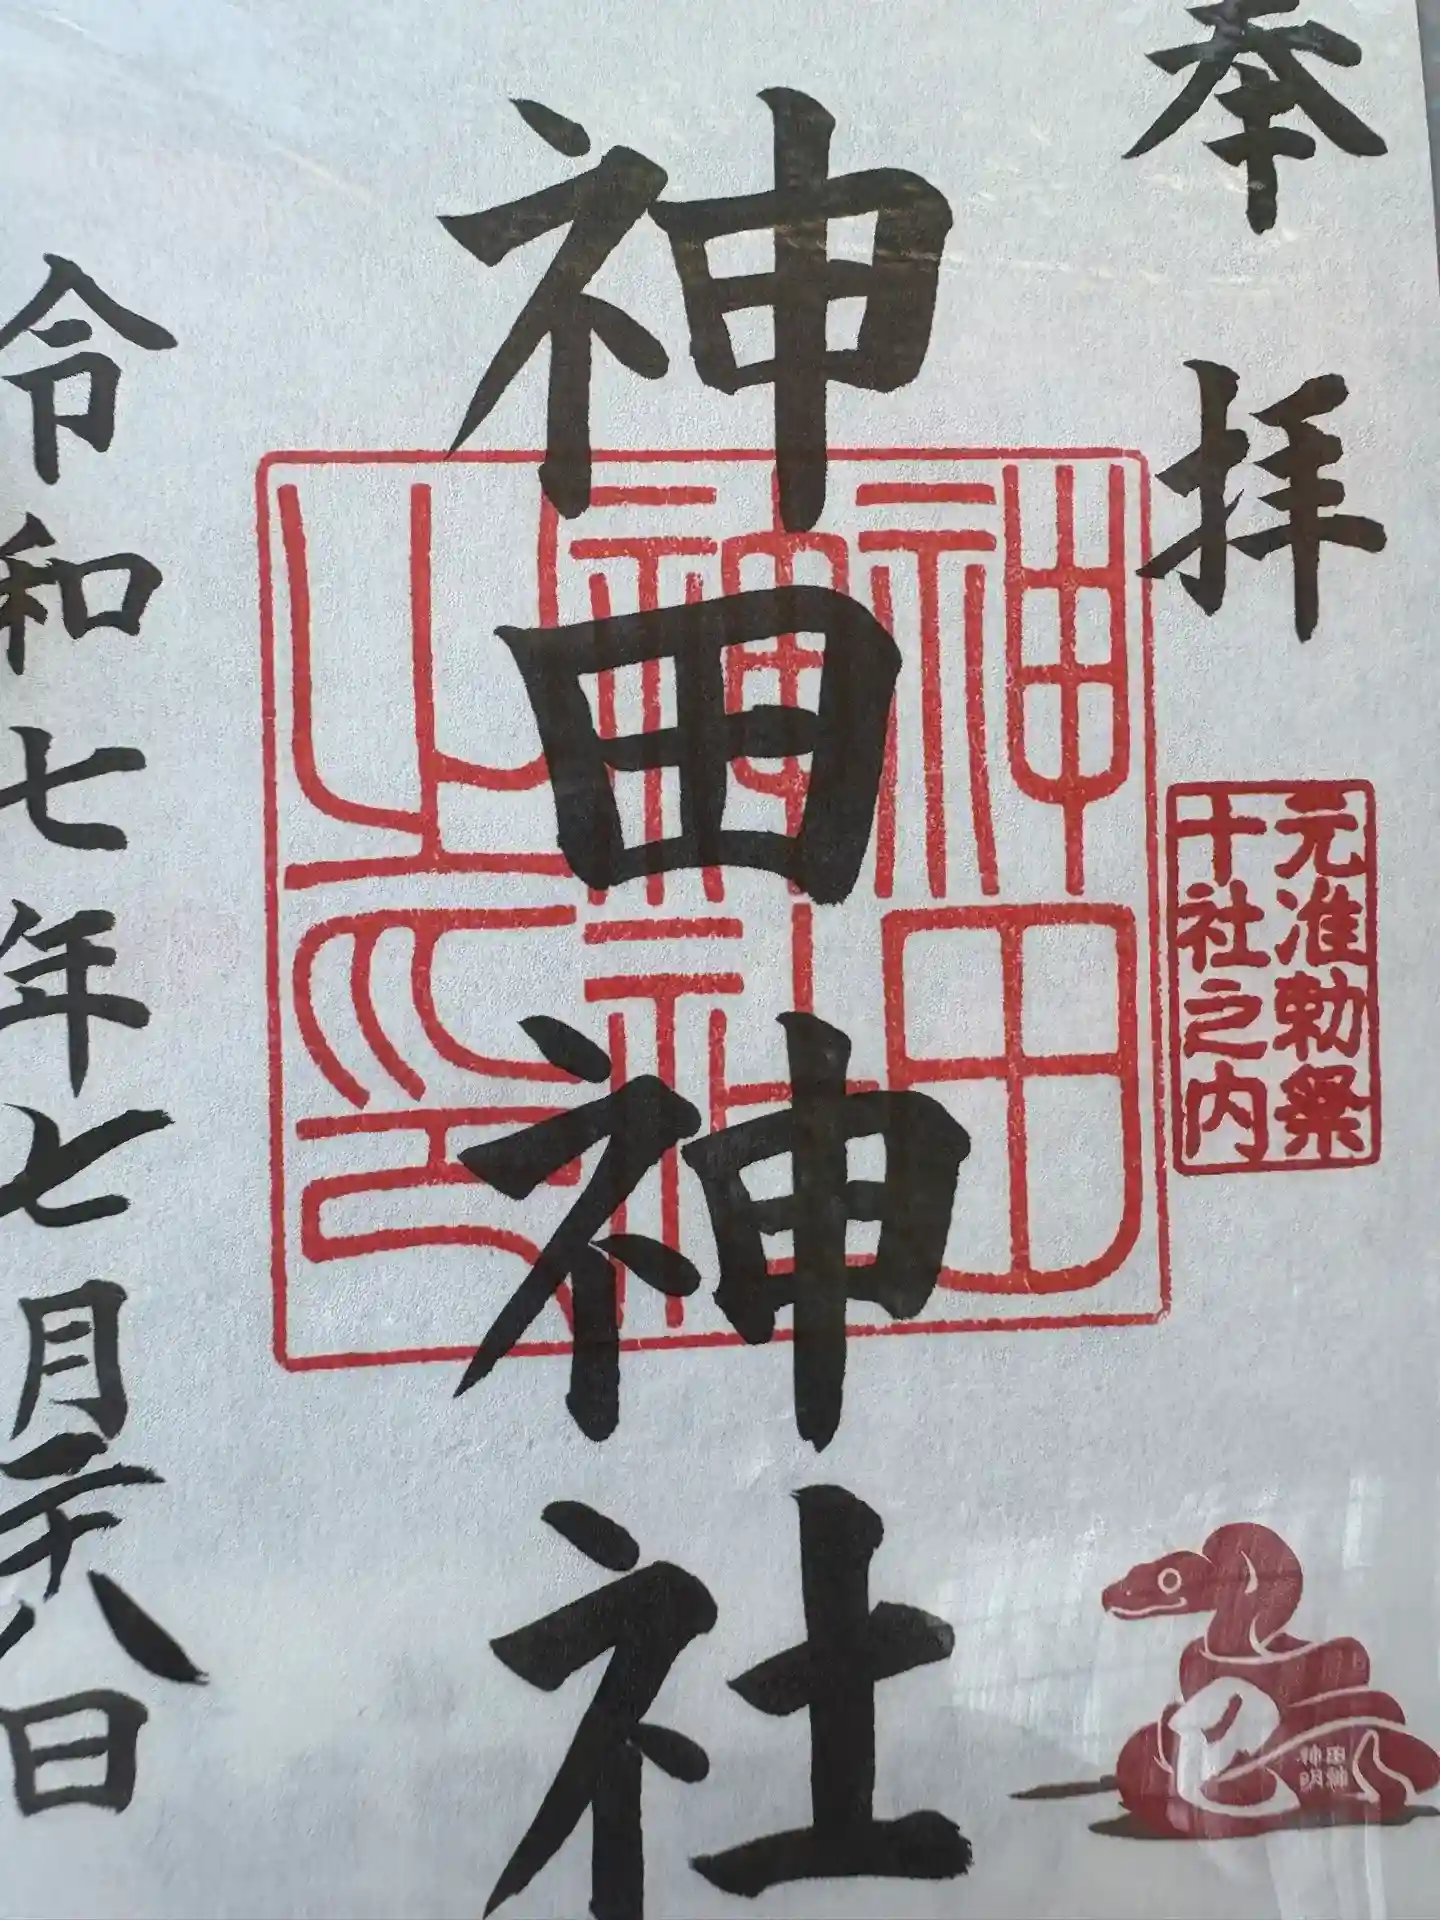 奉拝
元准勅祭
十社之内
巳
神田神社
神田
神社
之印
令和七年七月二十八日